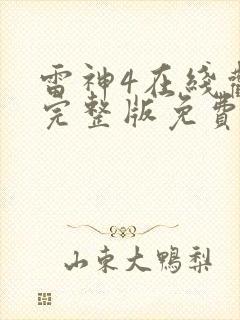 雷神4在綫觀
完整版免費
山東大鴨梨